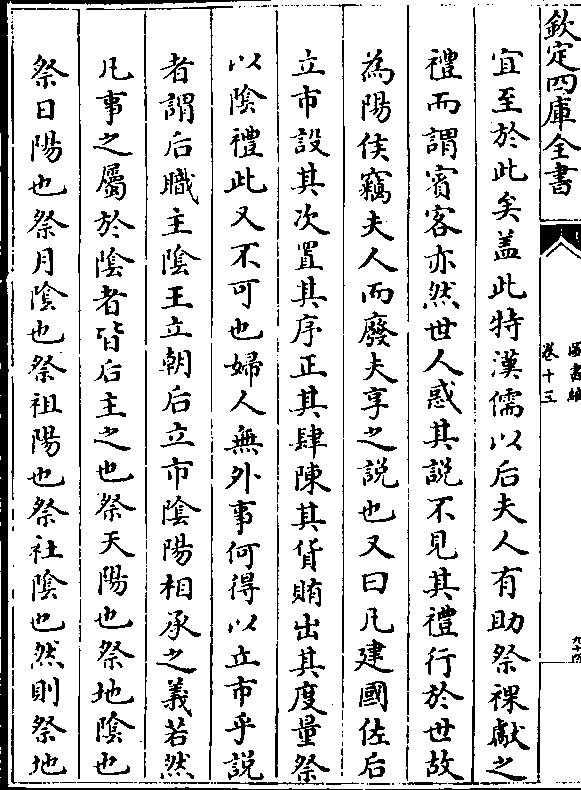 欽定四庫全書
圖書編
卷十三
宜至於此矣盖此特漢儒以后夫人有助祭祼獻之
禮而謂賓客亦然世人惑其說不見其禮行於世故
為陽侯竊夫人而廢夫享之説也又曰凡建國佐后
立市設其次置其序正其肆陳其貨賄出其度量祭
以陰禮此又不可也婦人無外事何得以立市乎説
者謂后職主陰王立朝后立市隂陽相承之義若然
凡事之屬於隂者皆后主之也祭天陽也祭地隂也
祭日陽也祭月隂也祭祖陽也祭社隂也然則祭地